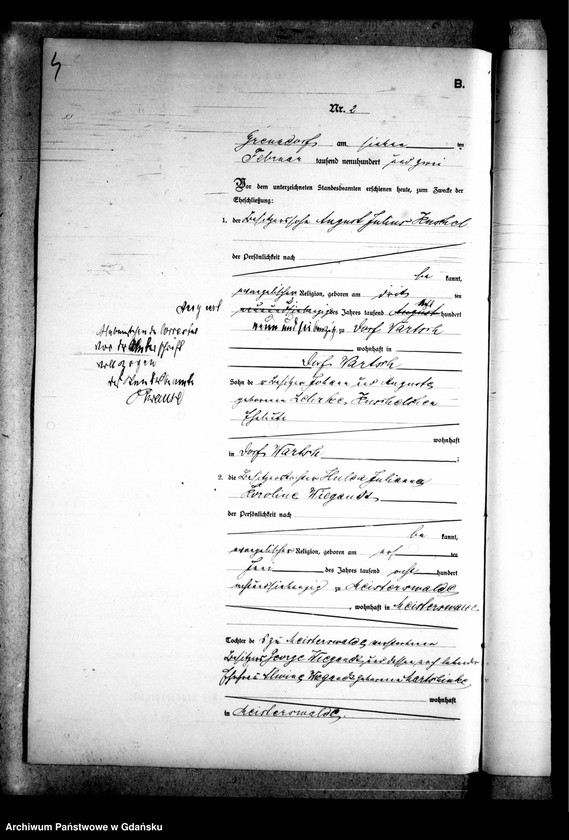 B.
Nr. 2
am sieben ten
Februar tausend neunhundert und zwei
Vor dem unterzeichneten Standesbeamten erschienen heute, zum Zwecke der
Eheschließung:
1. der Besitzersohn August Julius
der Persönlichkeit nach
be kannt,
evangelischer Religion, geboren am ten
des Jahres tausend acht hundert
neun und siebenzig zu Dorf Wartsch
wohnhaft in
Dorf Wartsch
Sohn des Besitzers Johann und Auguste
geborene
Eheleute
wohnhaft
in Dorf Wartsch ;
2. die Besitzertochter Hulda Julianna
Karoline Wiegandt
der Persönlichkeit nach
be kannt,
evangelischer Religion, geboren am ten
Juni des Jahres tausend acht hundert
achtundsiebenzig zu Meisterswalde
, wohnhaft in Meisterswalde.
Tochter des zu Meisterswalde verstorbenen
Besitzers George Wiegandt und dessen noch lebender
Ehefrau Wiegandt geborene
wohnhaft
in Meisterswalde.
vor der Unterschrift
vollzogen
Der Standesbeamte
Archiwum Państwowe w Gdańsku